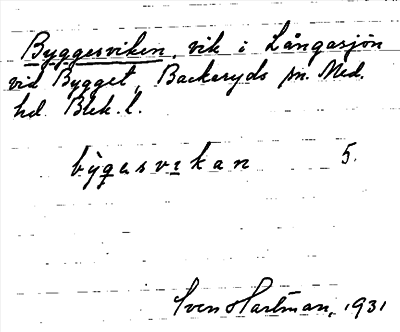 Byggesviken, vik i Långasjön
vid Bygget, Backaryds sn. Med.
hd. Blek. l.
bỳgesvıkan 5.
Sven Hartman, 1931